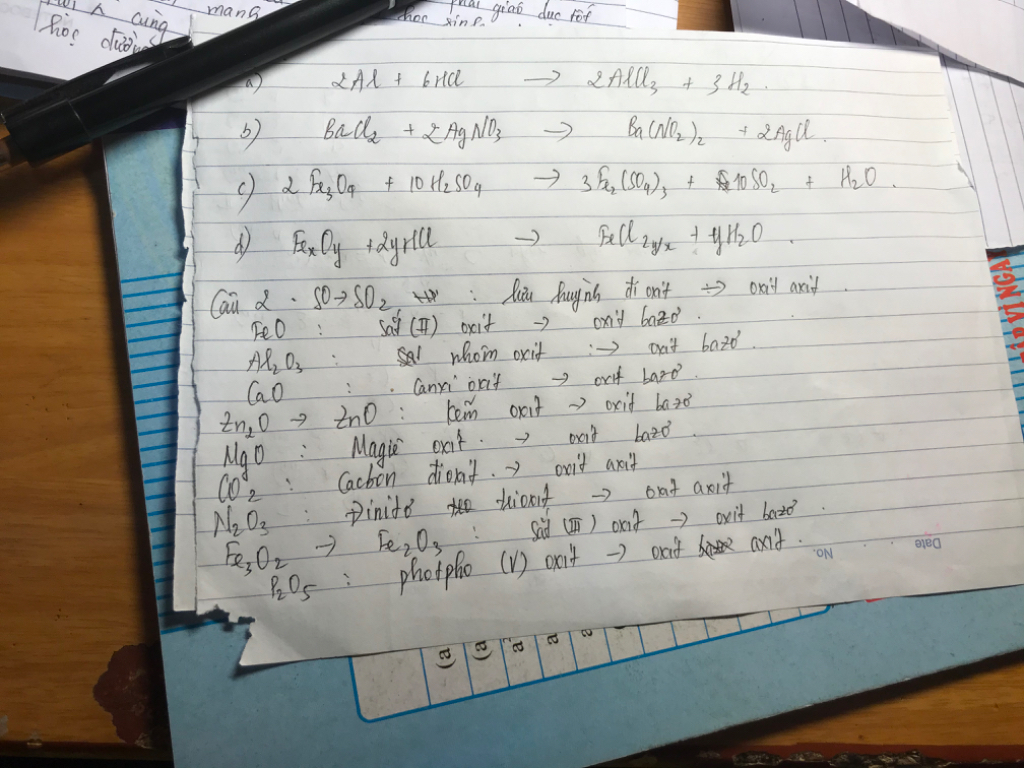 mang
phải giáo dục tốt
cùng
học sinh.
học đường
a) 2Al + 6HCl → 2AlCl₃ + 3H₂.
b) BaCl₂ + 2AgNO₃ → Ba(NO₂)₂ + 2AgCl.
c) 2Fe₃O₄ + 10H₂SO₄ → 3Fe₂(SO₄)₃ + 10SO₂ + H₂O.
d) FeₓOy + 2yHCl → FeCl₂y/ₓ + yH₂O.
Câu 2. SO → SO₂ : lưu huỳnh đioxit → oxit axit.
FeO : sắt (II) oxit → oxit bazơ.
Al₂O₃ : nhôm oxit :→ oxit bazơ.
CaO : canxi oxit → oxit bazơ.
Zn₂O → ZnO : kẽm oxit → oxit bazơ
MgO : Magiê oxit. → oxit bazơ.
CO₂ : Cacbon đioxit. → oxit axit
N₂O₃ : Đinitơ trioxit → oxit axit
Fe₃O₂ → Fe₂O₃ : sắt (III) oxit → oxit bazơ.
P₂O₅ : photpho (V) oxit → oxit axit.
No.
Date
ẤP VỊ NGA
(a
(a
a
a
a